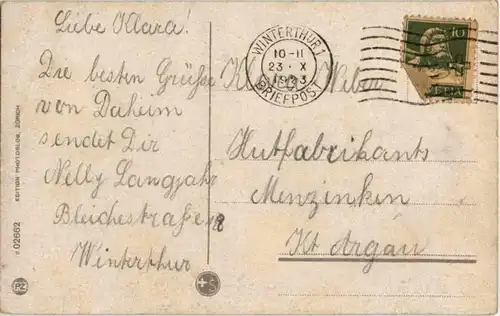 Liebe Klara!
Die besten Grüsse
von Daheim
sendet Dir
Nelly Langjahr
Bleichestraße 18
Winterthur
WINTERTHUR 1
10-11
23. X
1923
BRIEFPOST
10
Weber
Hutfabrikants
Menzinken
Kt Argau
EDITION PHOTOGLOB, ZÜRICH
02662
PZ
S